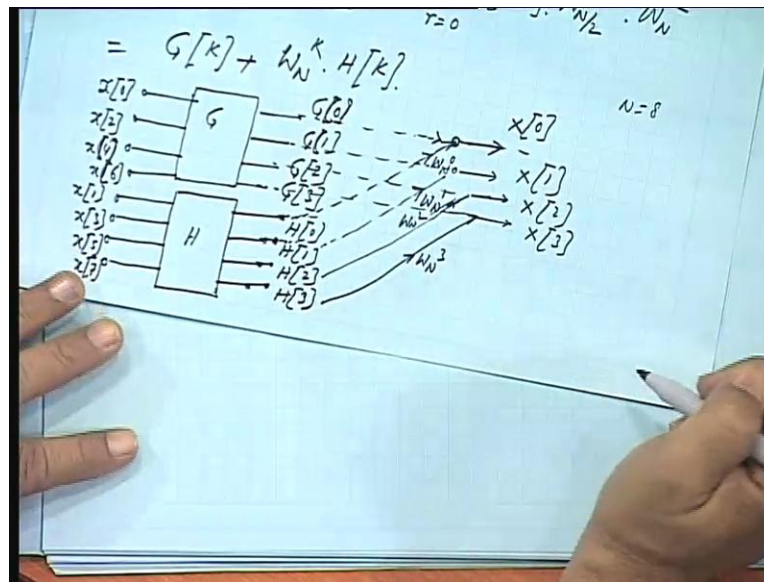 r=0 W_N/2 . W_N
= G[K] + W_N^K . H[K].
N=8
x[1]
x[2]
x[4]
x[6]
x[1]
x[3]
x[5]
x[7]
G
H
G[0]
G[1]
G[2]
G[3]
H[0]
H[1]
H[2]
H[3]
W_N^0
W_N^1
W_N^2
W_N^3
X[0]
X[1]
X[2]
X[3]